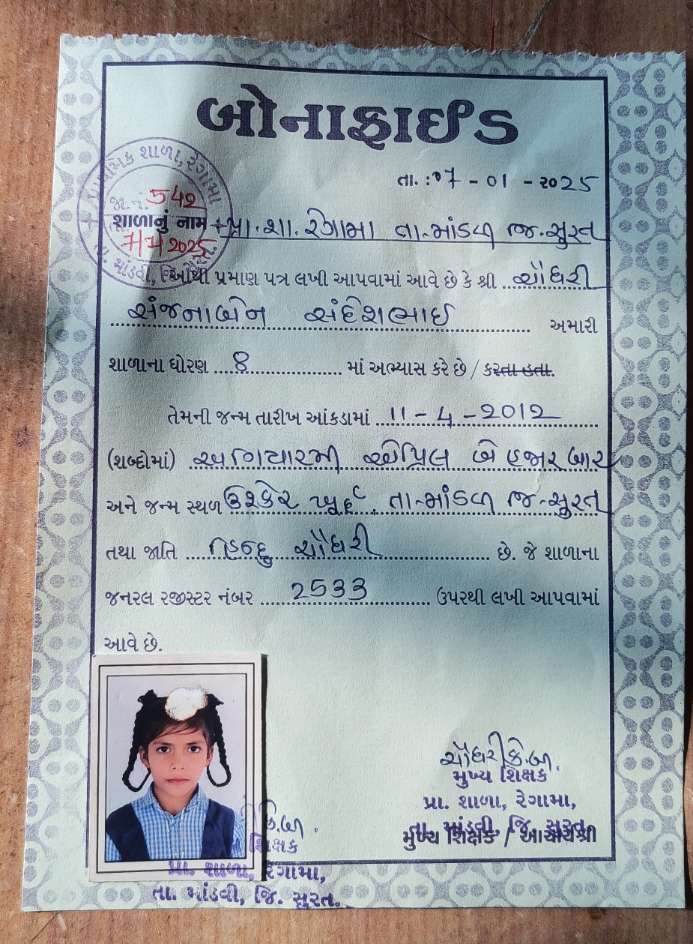 બોનાફાઈડ
તા. : ૦7 - 01 - ૨૦25
પ્રાથમિક શાળા, રેગામા
જા.નં. 542
શાળાનું નામ પ્રા.શા. રેગામા તા-માંડવી જિ-સુરત
7/1/2025
તા. માંડવી,
થી પ્રમાણ પત્ર લખી આપવામાં આવે છે કે શ્રી ચૌધરી
સંજનાબેન સંદેશભાઈ અમારી
શાળાના ધોરણ 8 માં અભ્યાસ કરે છે / કરતા હતા.
તેમની જન્મ તારીખ આંકડામાં 11-4-2012
(શબ્દોમાં) અગિયારમી એપ્રિલ બે હજાર બાર
અને જન્મ સ્થળ ઉશ્કેર ખૂર્દ તા-માંડવી જિ-સુરત
તથા જાતિ હિન્દુ ચૌધરી છે. જે શાળાના
જનરલ રજીસ્ટર નંબર 2533 ઉપરથી લખી આપવામાં
આવે છે.
ચૌધરી કે.બી.
મુખ્ય શિક્ષક
પ્રા. શાળા, રેગામા,
તા. માંડવી, જિ. સુરત.
મુખ્ય શિક્ષક / આચાર્યશ્રી
કે.બી.
શિક્ષક
પ્રા. શાળા, રેગામા,
તા. માંડવી, જિ. સુરત.